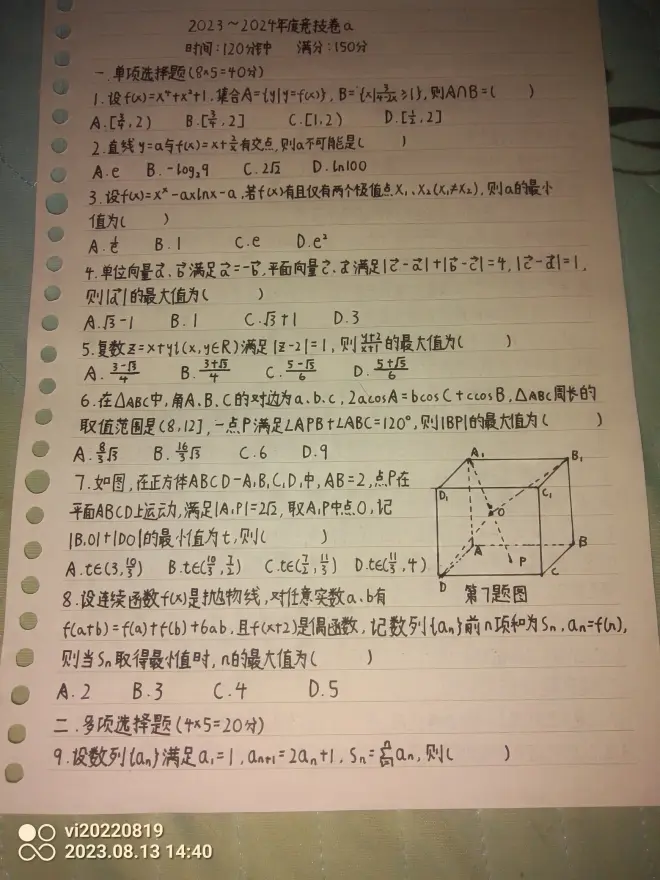 2023～2024年度竞技卷a
时间:120分钟 满分:150分
一.单项选择题(8×5=40分)
1.设f(x)=x⁴+x²+1,集合A={y|y=f(x)},B={x|3/(4-2x)≥1},则A∩B=( )
A.[3/4,2) B.[3/4,2] C.[1,2) D.[1/2,2]
2.直线y=a与f(x)=x+2/x有交点,则a不可能是( )
A.e B.-log₂9 C.2√2 D.ln100
3.设f(x)=xˣ-axlnx-a,若f(x)有且仅有两个极值点x₁、x₂(x₁≠x₂),则a的最小
值为( )
A.1/e B.1 C.e D.e²
4.单位向量a⃗、b⃗满足a⃗=-b⃗,平面向量c⃗、d⃗满足|c⃗-a⃗|+|b⃗-c⃗|=4,|c⃗-d⃗|=1,
则|d⃗|的最大值为( )
A.√3-1 B.1 C.√3+1 D.3
5.复数z=x+yi(x,y∈R)满足|z-2|=1,则(y+2)/(x+1)的最大值为( )
A.(3-√3)/4 B.(3+√3)/4 C.(5-√5)/6 D.(5+√5)/6
6.在△ABC中,角A、B、C的对边为a、b、c,2acosA=bcosC+ccosB,△ABC周长的
取值范围是(8,12],一点P满足∠APB+∠ABC=120°,则|BP|的最大值为( )
A.8/3√3 B.16/3√3 C.6 D.9
7.如图,在正方体ABCD-A₁B₁C₁D₁中,AB=2,点P在
平面ABCD上运动,满足|A₁P|=2√2,取A₁P中点O,记
|B₁O|+|DO|的最小值为t,则( )
A.t∈(3,10/3) B.t∈(10/3,7/2) C.t∈(7/2,11/3) D.t∈(11/3,4)
A₁
B₁
D₁
C₁
O
A
B
P
D
C
第7题图
8.设连续函数f(x)是抛物线,对任意实数a、b有
f(a+b)=f(a)+f(b)+6ab,且f(x+2)是偶函数,记数列{aₙ}前n项和为Sₙ,aₙ=f(n),
则当Sₙ取得最小值时,n的最大值为( )
A.2 B.3 C.4 D.5
二.多项选择题(4×5=20分)
9.设数列{aₙ}满足a₁=1,aₙ₊₁=2aₙ+1,Sₙ=∑aₙ,则( )
vi20220819
2023.08.13 14:40